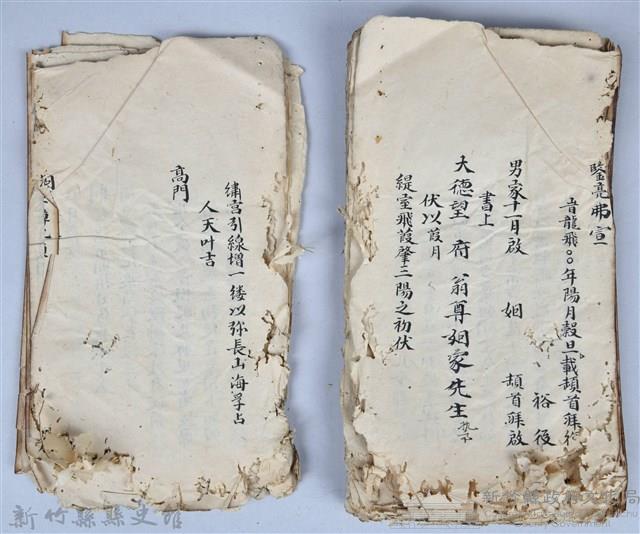 鑒亮弗宣
旹龍飛○○年陽月穀旦載頡首稣
裕後
男家十一月啟 姻 頡首稣啟
書上
大德望 府 翁尊姻家先生
伏以葭月
緹室飛葭肇三陽之初伏
繡宮引線增一縷以弥長山海浮占
人天叶吉
高門
新竹縣縣史館
新竹縣政府文化局